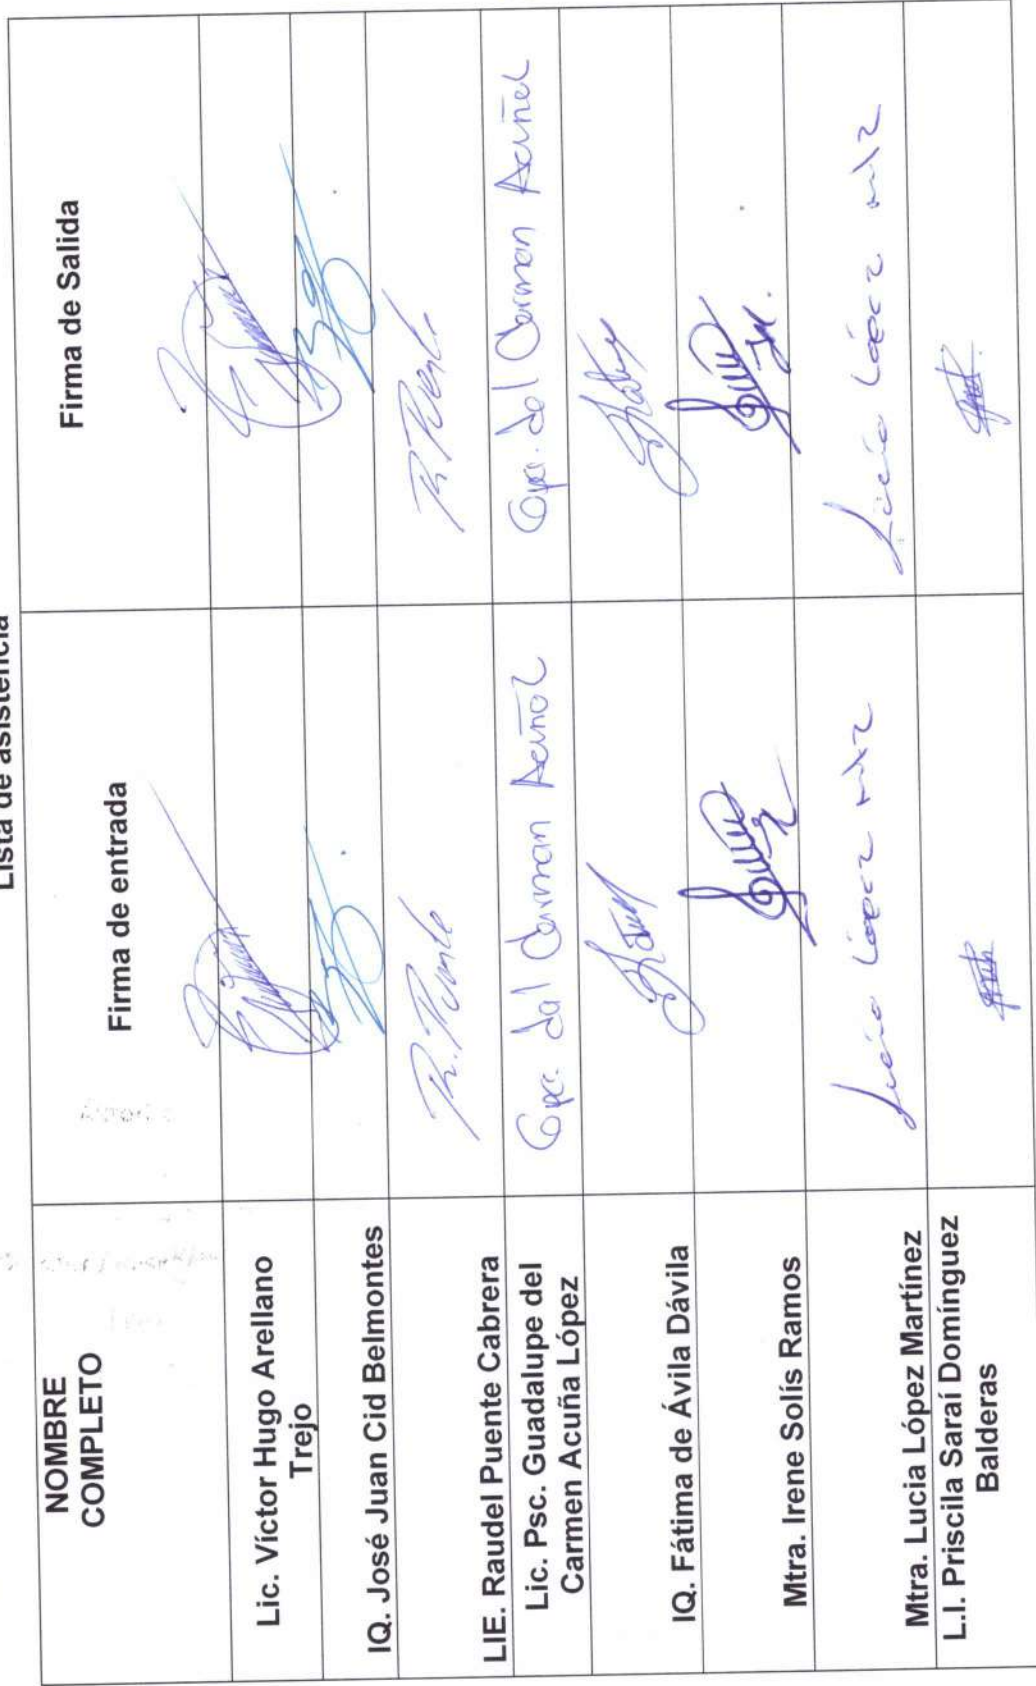 Lista de asistencia
NOMBRE Firma de entrada Firma de Salida
COMPLETO
Lic. Víctor Hugo Arellano
Trejo
IQ. José Juan Cid Belmontes
LIE. Raudel Puente Cabrera R. Puente R. Puente
Lic. Psc. Guadalupe del Gpe. del Carmen Acuña L Gpe. del Carmen Acuña L
Carmen Acuña López
IQ. Fátima de Ávila Dávila
Mtra. Irene Solís Ramos
Mtra. Lucia López Martínez Lucía López Lucía López
L.I. Priscila Saraí Domínguez
Balderas